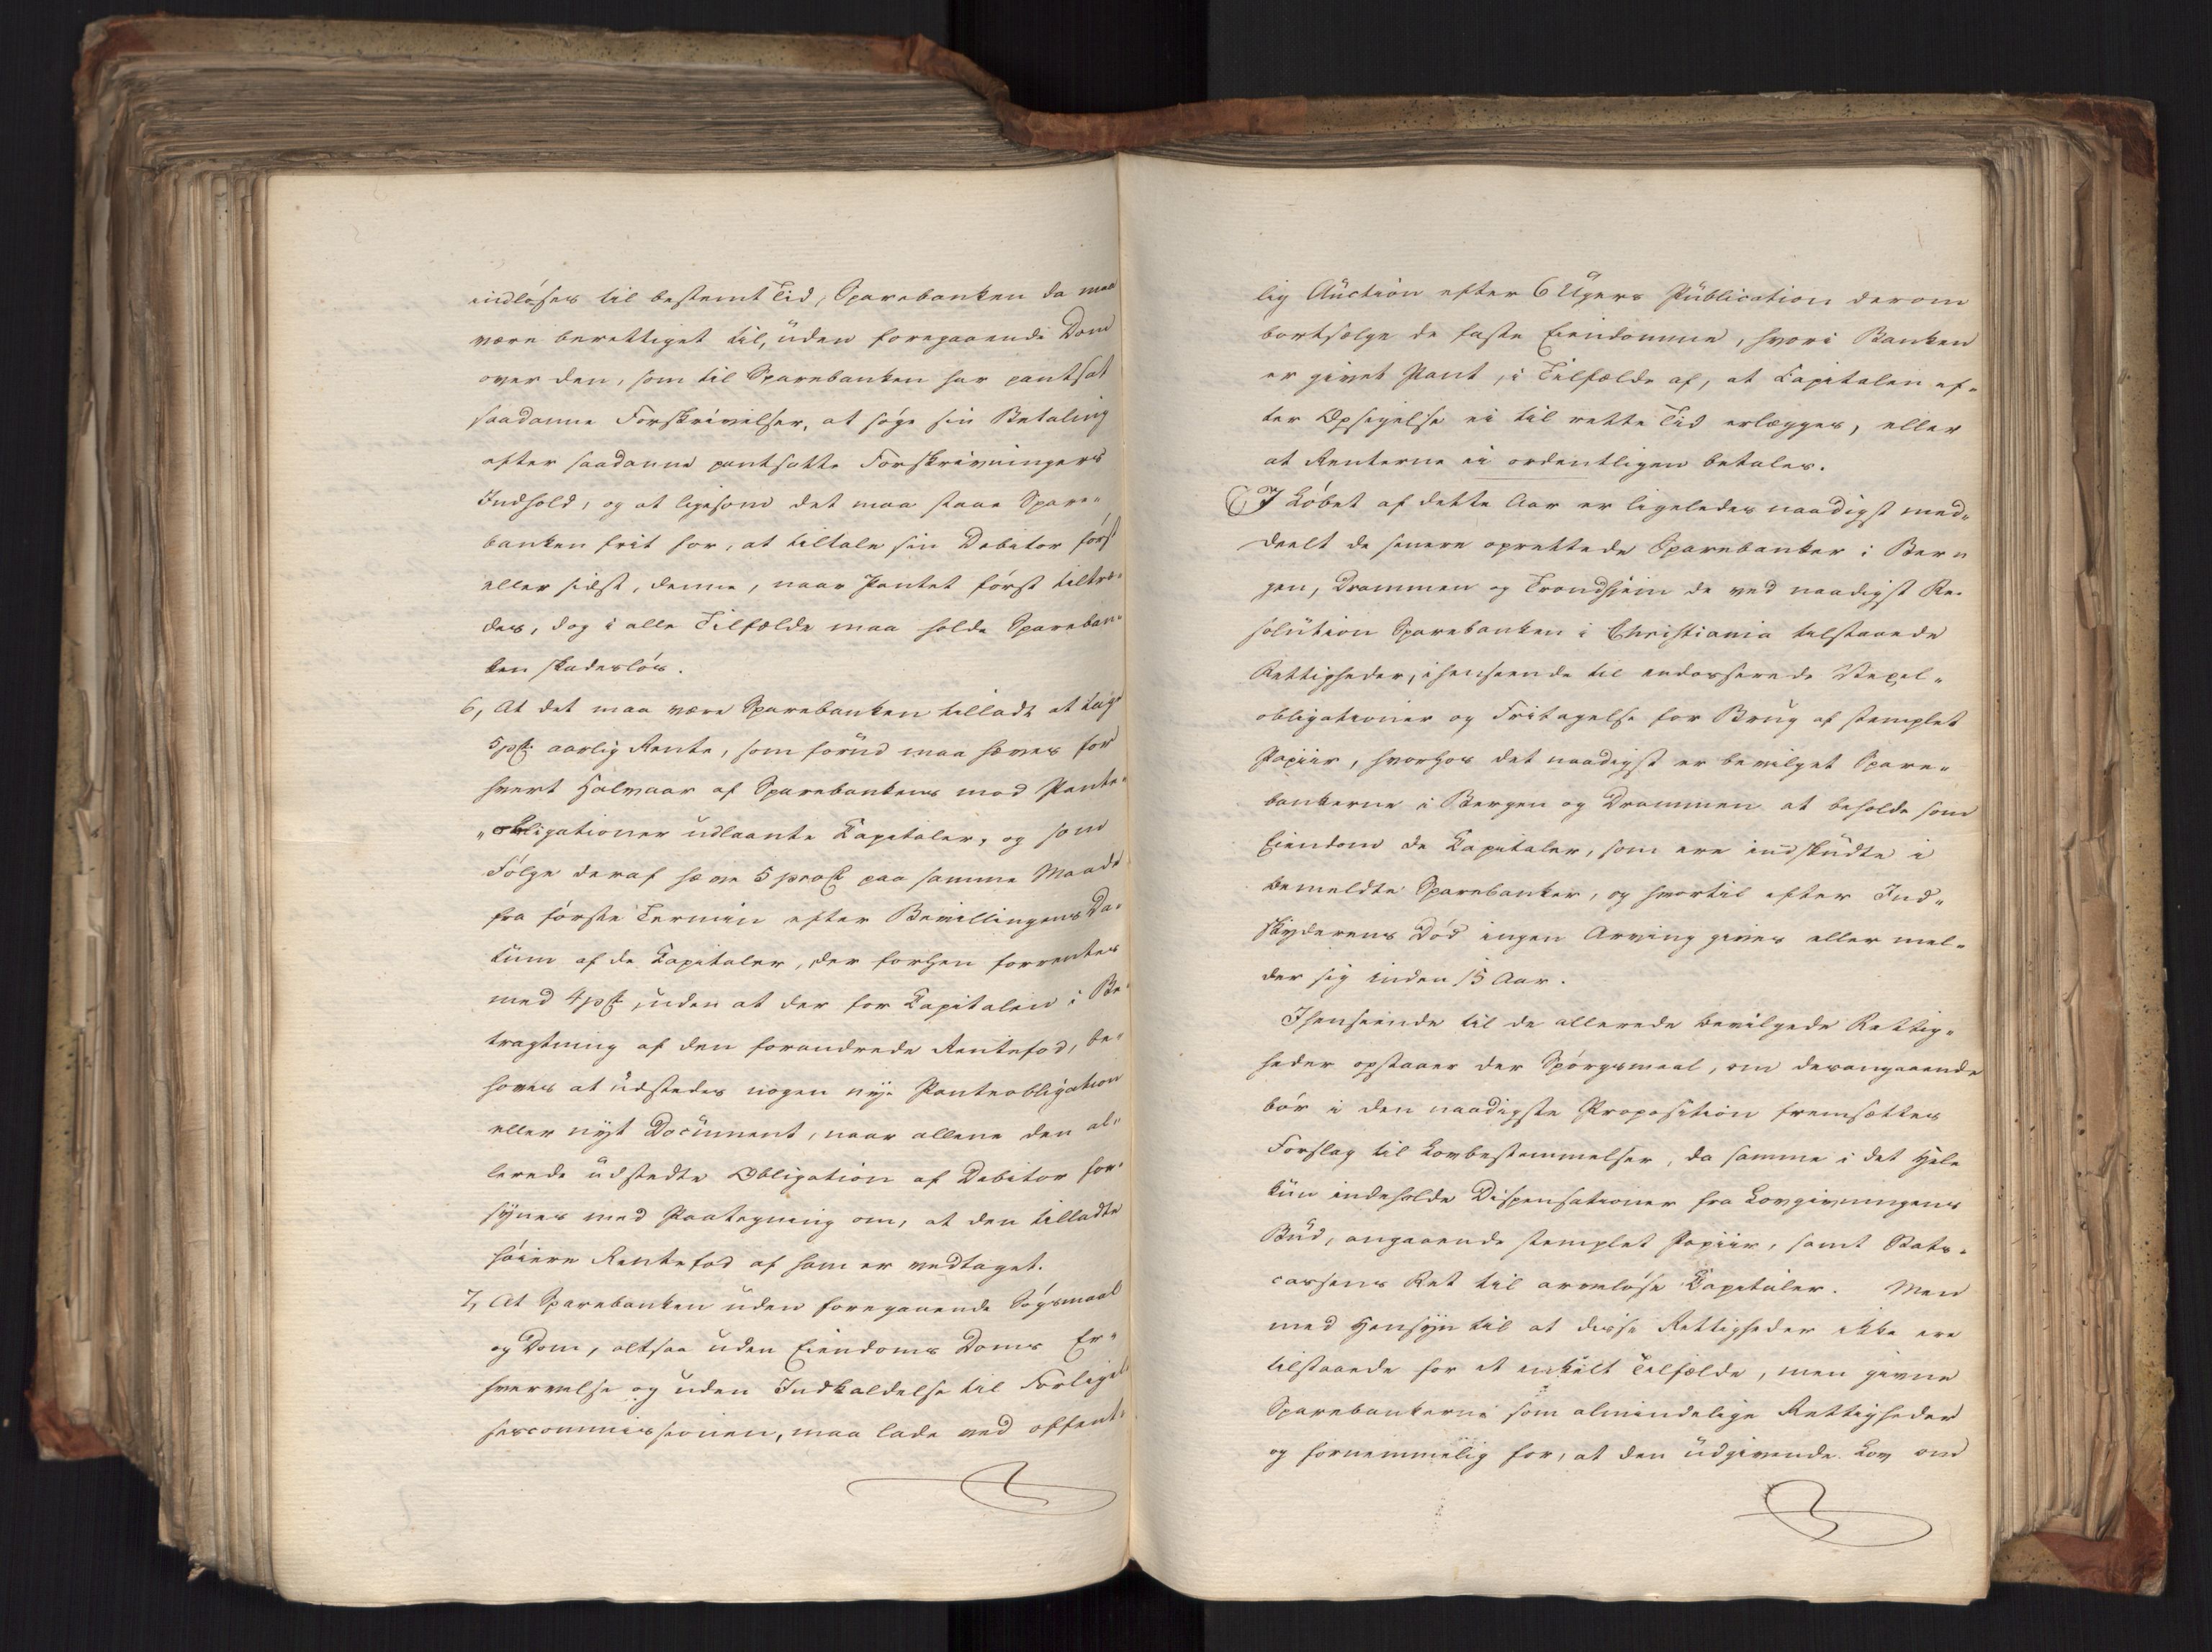 indløses til bestemt Tid, Sparebanken da maa
være berettiget til, uden foregaaende Dom
over den, som til Sparebanken har pantsat
saadanne Forskrivelser, at søge sin Betaling
efter saadanne pantsatte Forskrivningers
Indhold, og at ligesom det maa staae Spare„
banken frit for, at tiltale sin Debitor først
eller sidst, denne, naar Pantet først tiltræ„
des, dog i alle Tilfælde maa holde Spareban„
ken skadesløs.
6, At det maa være Sparebanken tilladt at tage
5 pCt. aarlig Rente, som forud maa hæves for
hvert Halvaar af Sparebankens mod Pante„
„obligationer udlaante Kapitaler, og som
Følge deraf hæve 5 proCt paa samme Maade
fra første Termin efter Bevillingens Da„
tum af de Kapitaler, der forhen forrentes
med 4 pCt. uden at der for Kapitalen i Be„
tragtning af den forandrede Rentefod, be„
høves at udstedes nogen nye Panteobligation
eller nyt Document, naar allene den al„
lerede udstedte Obligation af Debitor for„
synes med Paategning om, at den tilladte
høiere Rentefod af ham er vedtaget.
7, At Sparebanken uden foregaaende Søgsmaal
og Dom, altsaa uden Eiendoms Doms Er„
hvervelse og uden Indkaldelse til Forligel„
sescommissionen, maa lade ved offent„
lig Auction efter 6 Ugers Publication derom
bortsælge de faste Eiendomme, hvori Banken
er givet Pant, i Tilfælde af, at Capitalen ef„
ter Opsigelse ei til rette Tid erlægges, eller
at Renterne ei ordentligen betales.
I Løbet af dette Aar er ligeledes naadigst med„
deelt de senere oprettede Sparebanker i Ber„
gen, Drammen og Trondhjem de ved naadigst Re„
solution Sparebanken i Christiania tilstaaede
Rettigheder, ihenseende til endosserede Vexel„
obligationer og Fritagelse for Brug af stemplet
Papiir, hvorhos det naadigst er bevilget Spare„
bankerne i Bergen og Drammen at beholde som
Eiendom de Kapitaler, som ere indskudte i
bemeldte Sparebanker, og hvortil efter Ind„
skyderens Død ingen Arving gives eller mel„
der sig inden 15 Aar.
Ihenseende til de allerede bevilgede Rettig„
heder opstaaer der Spørgsmaal, om desangaaende
bør i den naadigste Proposition fremsættes
Forslag til Lovbestemmelser, da samme i det Hele
kun indeholde Dispensationer fra Lovgivningens
Bud, angaaende stemplet Papiir, samt Stats„
cassens Ret til arveløse Kapitaler. Men
med Hensyn til at disse Rettigheder ikke ere
tilstaaede for et enkelt Tilfælde, men givne
Sparebankerne som almindelige Rettigheder
og fornemmelig for, at den udgivende Lov om